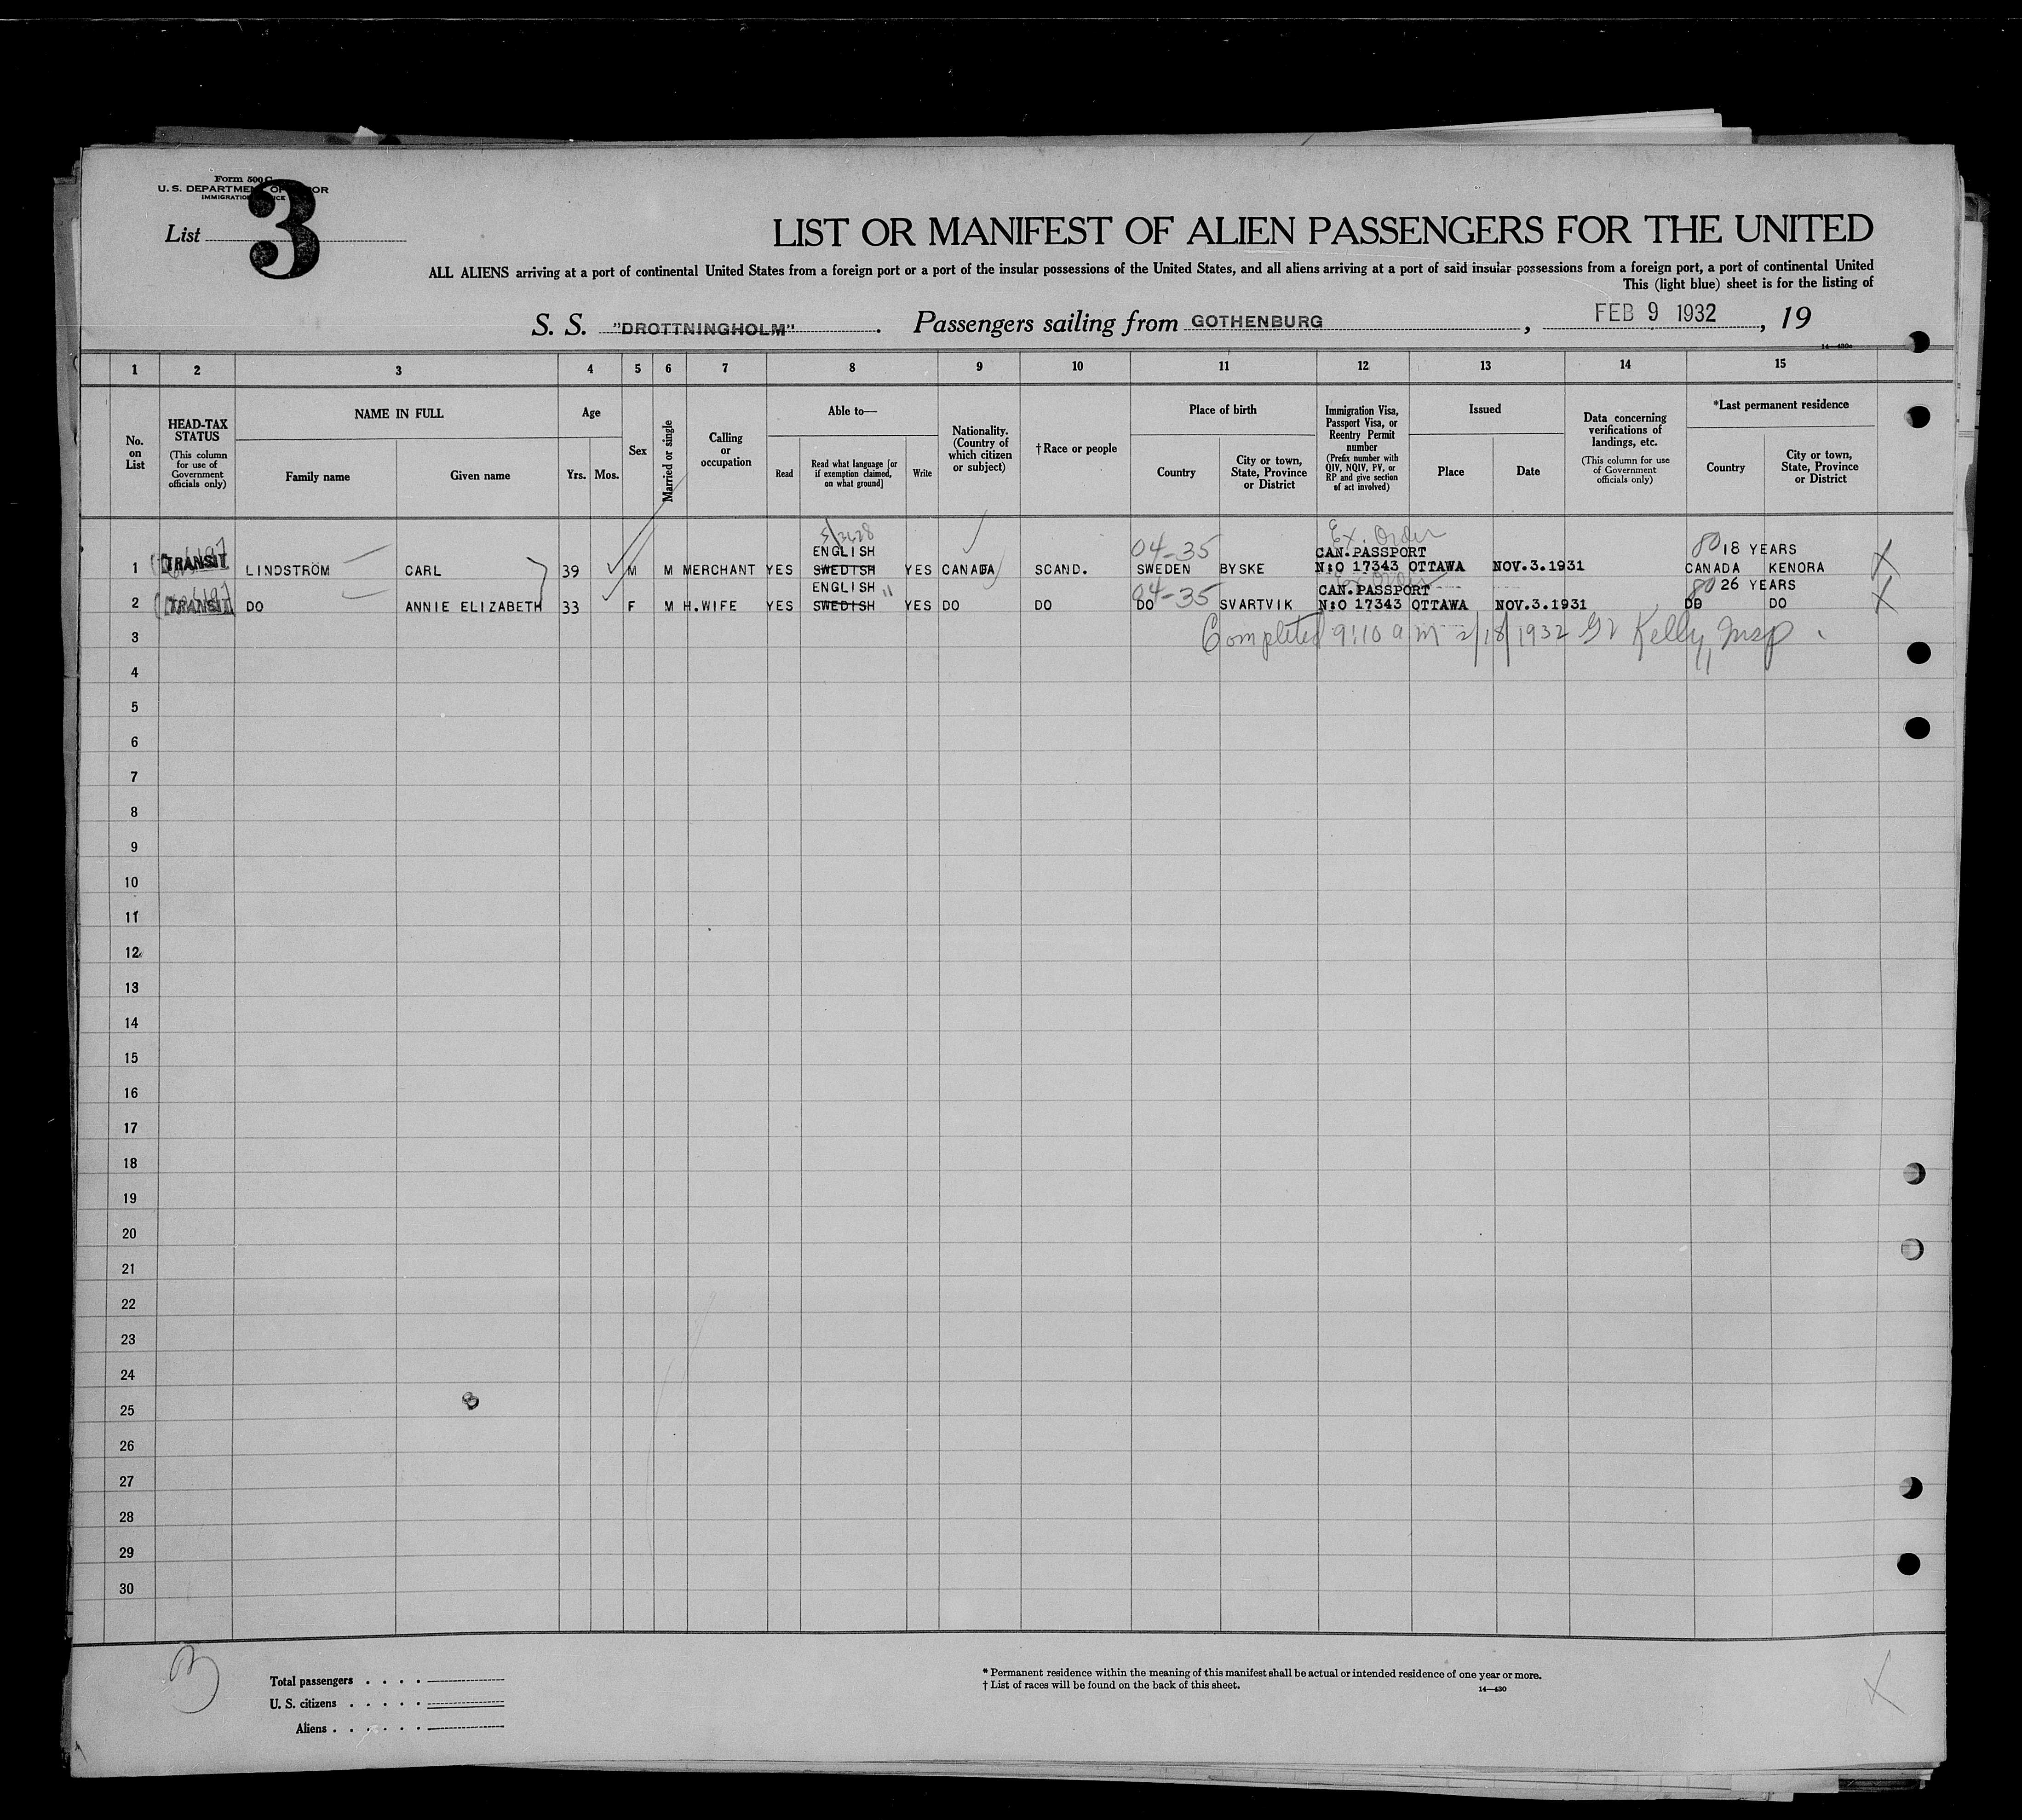 Form 500 C
U. S. DEPARTMENT OF LABOR
IMMIGRATION SERVICE
List 3
LIST OR MANIFEST OF ALIEN PASSENGERS FOR THE UNITED
ALL ALIENS arriving at a port of continental United States from a foreign port or a port of the insular possessions of the United States, and all aliens arriving at a port of said insular possessions from a foreign port, a port of continental United
This (light blue) sheet is for the listing of
S. S. "DROTTNINGHOLM". Passengers sailing from GOTHENBURG, FEB 9 1932, 19
14—430a
1 2 3 4 5 6 7 8 9 10 11 12 13 14 15
No. on List
HEAD-TAX STATUS (This column for use of Government officials only)
NAME IN FULL
Family name
Given name
Age
Yrs. Mos.
Sex
Married or single
Calling or occupation
Able to—
Read
Read what language [or if exemption claimed, on what ground]
Write
Nationality. (Country of which citizen or subject)
†Race or people
Place of birth
Country
City or town, State, Province or District
Immigration Visa, Passport Visa, or Reentry Permit number (Prefix number with QIV, NQIV, PV, or RP and give section of act involved)
Issued
Place
Date
Data concerning verifications of landings, etc. (This column for use of Government officials only)
*Last permanent residence
Country
City or town, State, Province or District
04-35 Ex. Order 80
ENGLISH CAN.PASSPORT 18 YEARS
1 TRANSIT LINDSTRÖM CARL 39 M M MERCHANT YES SWEDISH YES CANADA SCAND. SWEDEN BYSKE N:O 17343 OTTAWA NOV.3.1931 CANADA KENORA X
04-35 Ex Order 80
ENGLISH " CAN.PASSPORT 26 YEARS
2 TRANSIT DO ANNIE ELIZABETH 33 F M H.WIFE YES SWEDISH YES DO DO DO SVARTVIK N:O 17343 OTTAWA NOV.3.1931 DO DO X
3 Completed 9:10 a m 2/18/1932 Kelly, Insp.
4
5
6
7
8
9
10
11
12
13
14
15
16
17
18
19
20
21
22
23
24
25
26
27
28
29
30
3
Total passengers
U. S. citizens
Aliens
* Permanent residence within the meaning of this manifest shall be actual or intended residence of one year or more.
† List of races will be found on the back of this sheet.
14—430
X